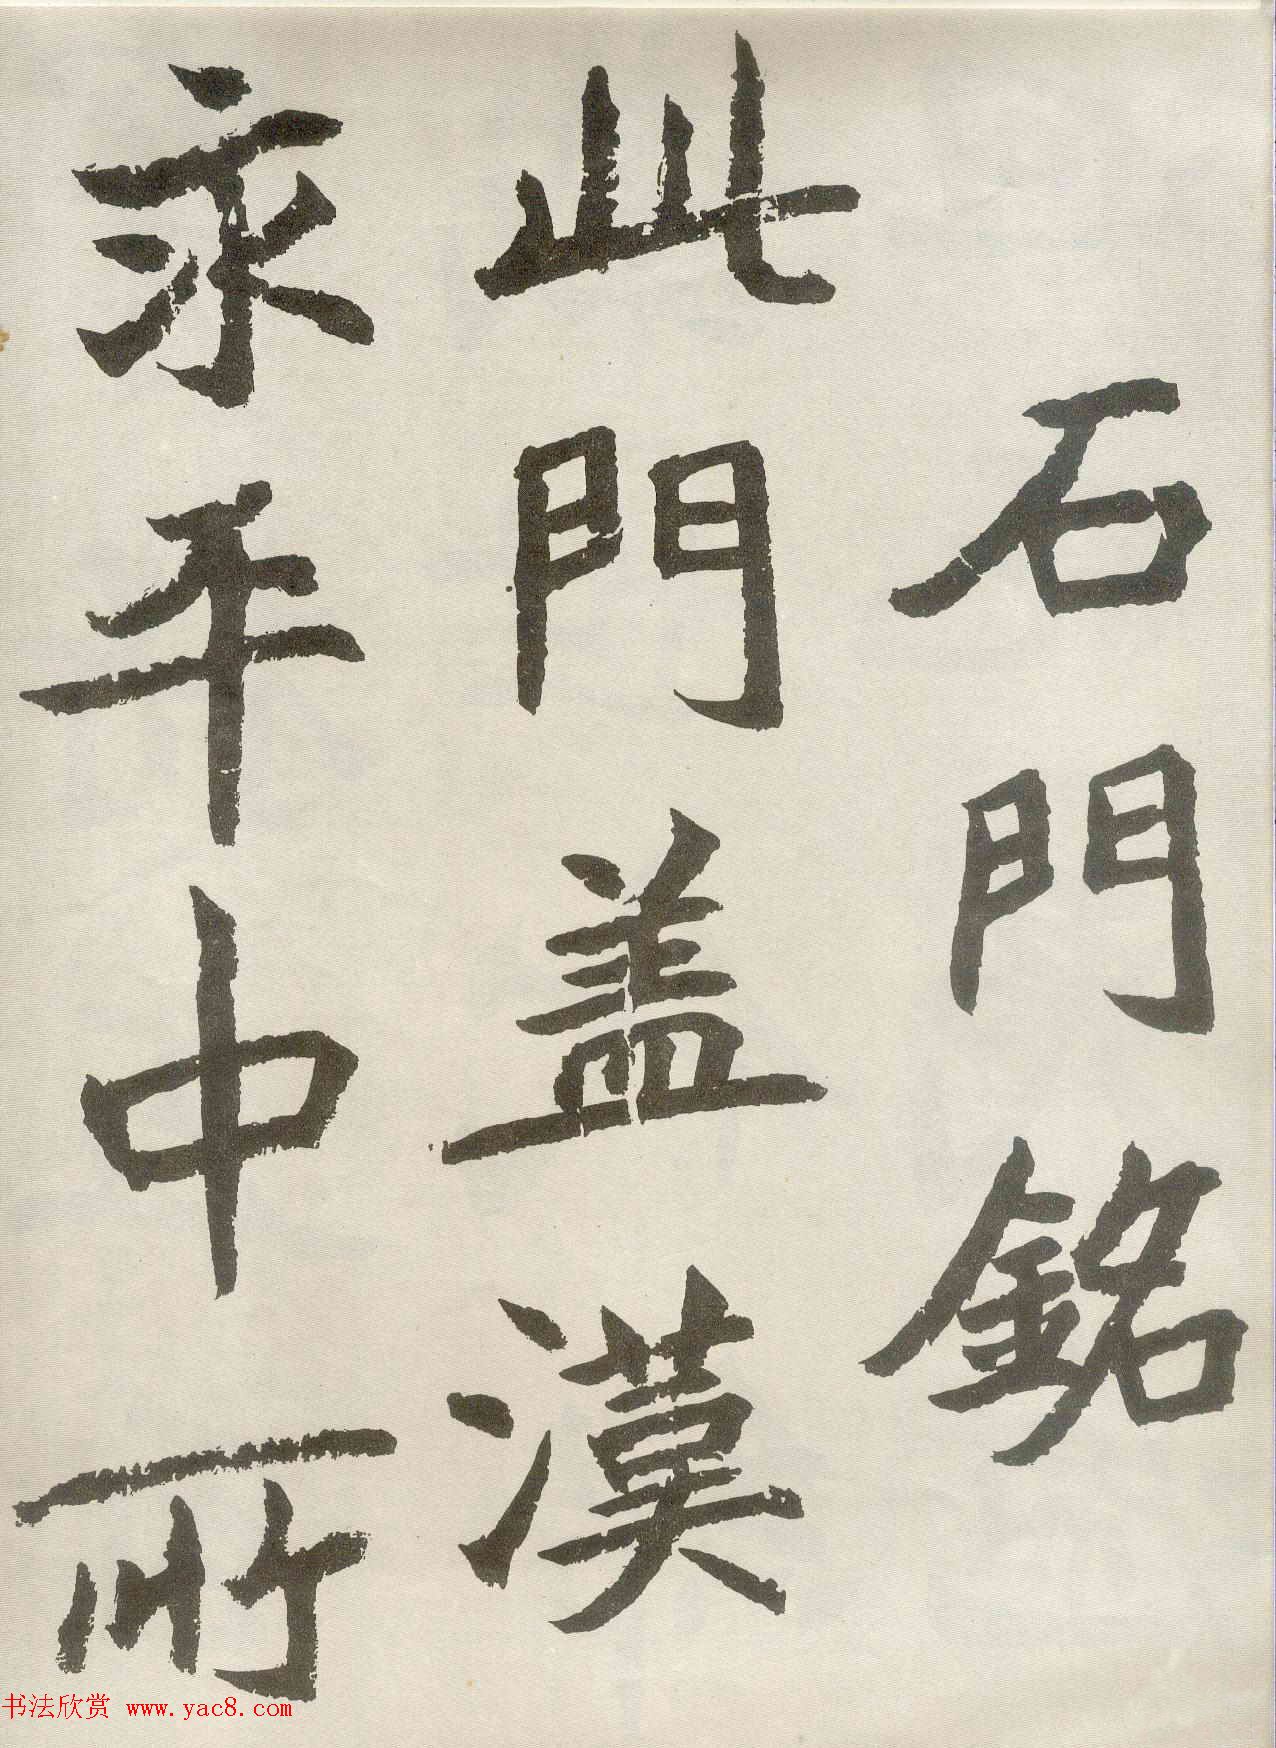 石門銘
此門盖漢
永平中所
书法欣赏 www.yac8.com